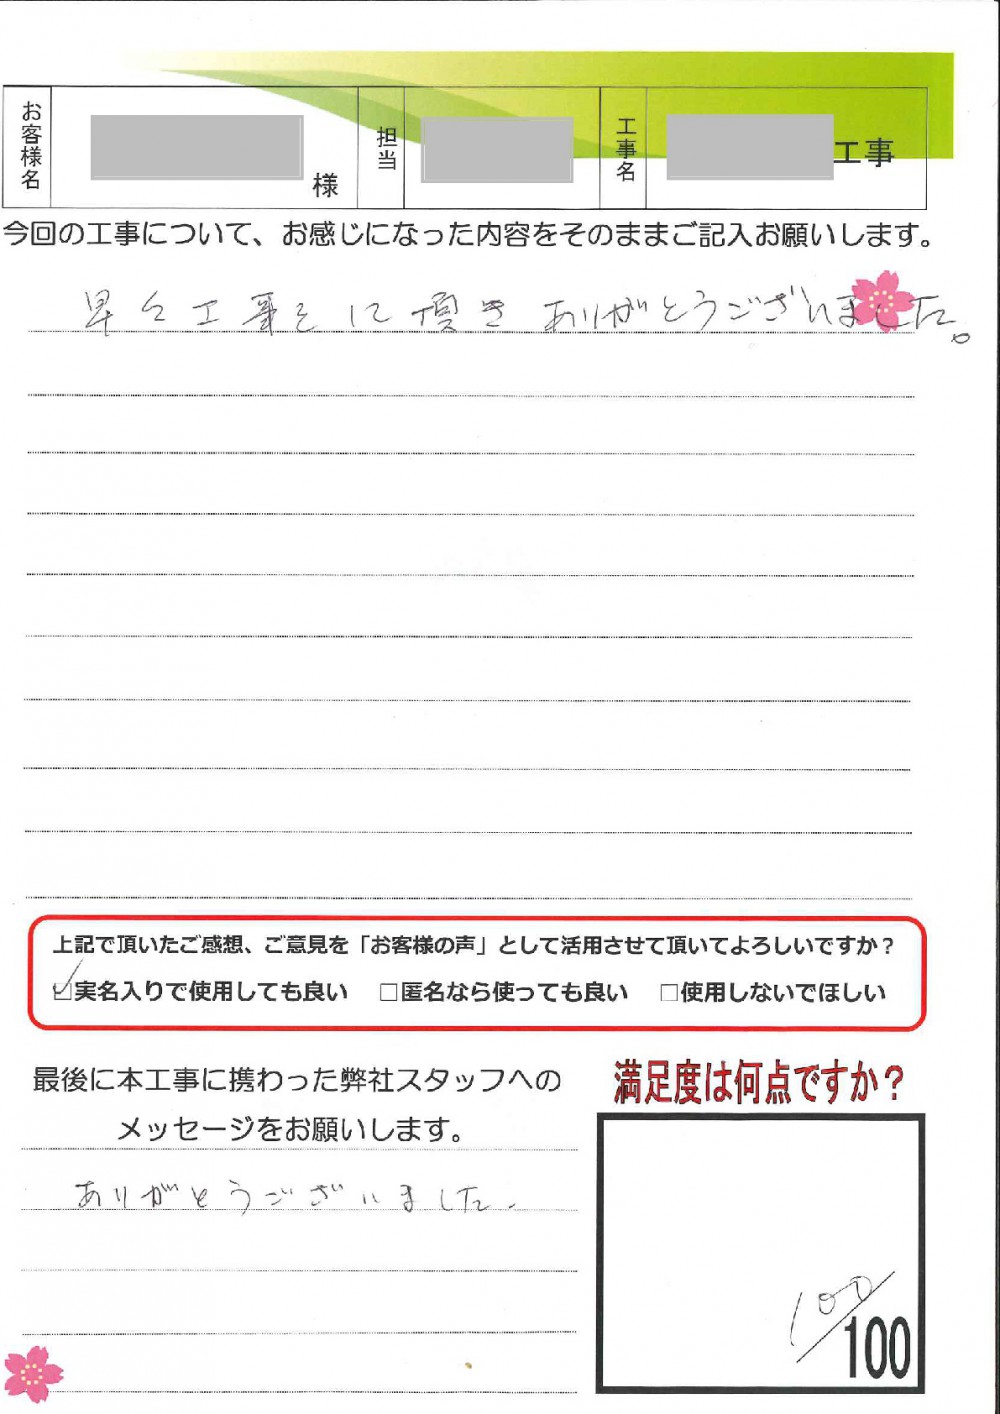 お客様名 様 担当 工事名 工事
今回の工事について、お感じになった内容をそのままご記入お願いします。
早々工事をして頂き ありがとうございました。
上記で頂いたご感想、ご意見を「お客様の声」として活用させて頂いてよろしいですか？
☑実名入りで使用しても良い □匿名なら使っても良い □使用しないでほしい
最後に本工事に携わった弊社スタッフへの
メッセージをお願いします。
ありがとうございました。
満足度は何点ですか？
100/100